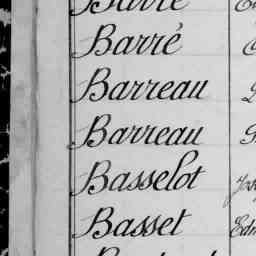 Barré
Barreau
Barreau
Basselot Jos
Basset Edm